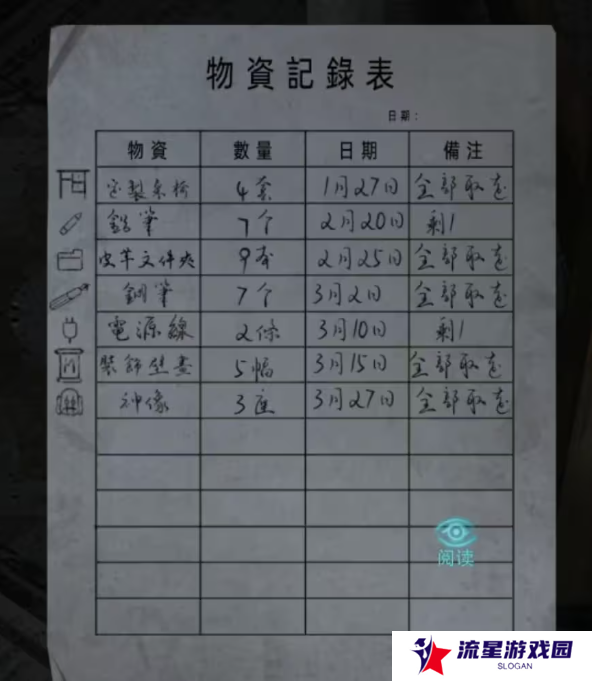 物資記錄表
日期：
物資 數量 日期 備注
定製桌椅 4套 1月27日 全部取走
鉛筆 7个 2月20日 剩1
皮革文件夾 9本 2月25日 全部取走
鋼筆 7个 3月2日 全部取走
電源線 2條 3月10日 剩1
裝飾壁畫 5幅 3月15日 全部取走
神像 3座 3月27日 全部取走
阅读
流星游戏园
SLOGAN